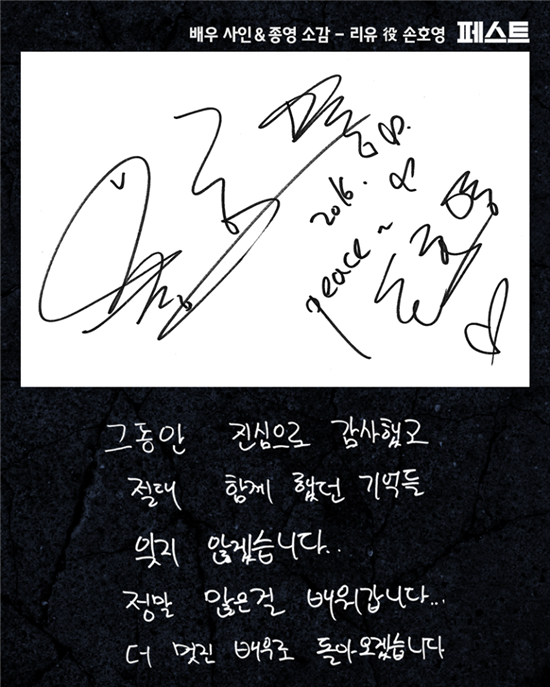 배우 사인 & 종영 소감 - 리유 役 손호영 페스트
2016.
peace ~
그동안 진심으로 감사했고
절대 함께 했던 기억들
잊지 않겠습니다..
정말 많은걸 배워갑니다...
더 멋진 배우로 돌아오겠습니다